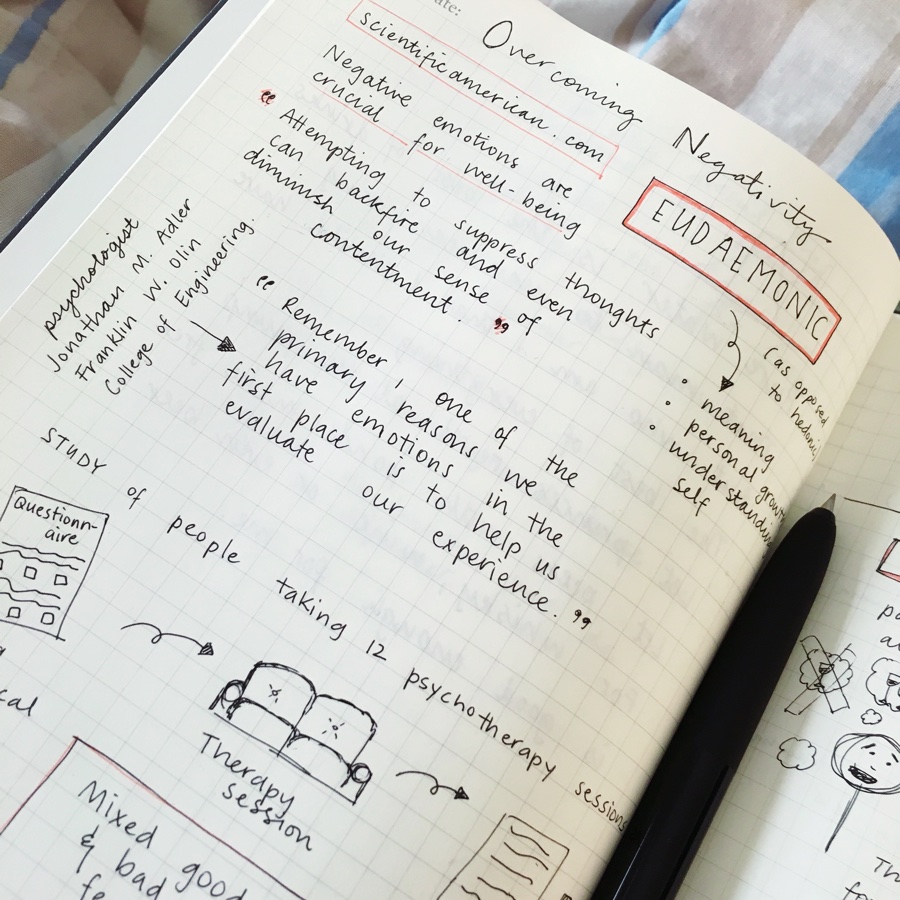 Overcoming Negativity
scientificamerican.com
Negative emotions are
crucial for well-being
“ Attempting to suppress thoughts
can backfire and even
diminish our sense of
contentment. ”
EUDAEMONIC
(as opposed
to hedonic
• meaning
• personal growth
• understanding
self
psychologist
Jonathan M. Adler
Franklin W. Olin
College of Engineering.
“ Remember, one of the
primary reasons we
have emotions in the
first place is to help us
evaluate our experience. ”
STUDY of people taking 12 psychotherapy sessions
Questionn-
aire
Therapy
session
Mixed good
& bad